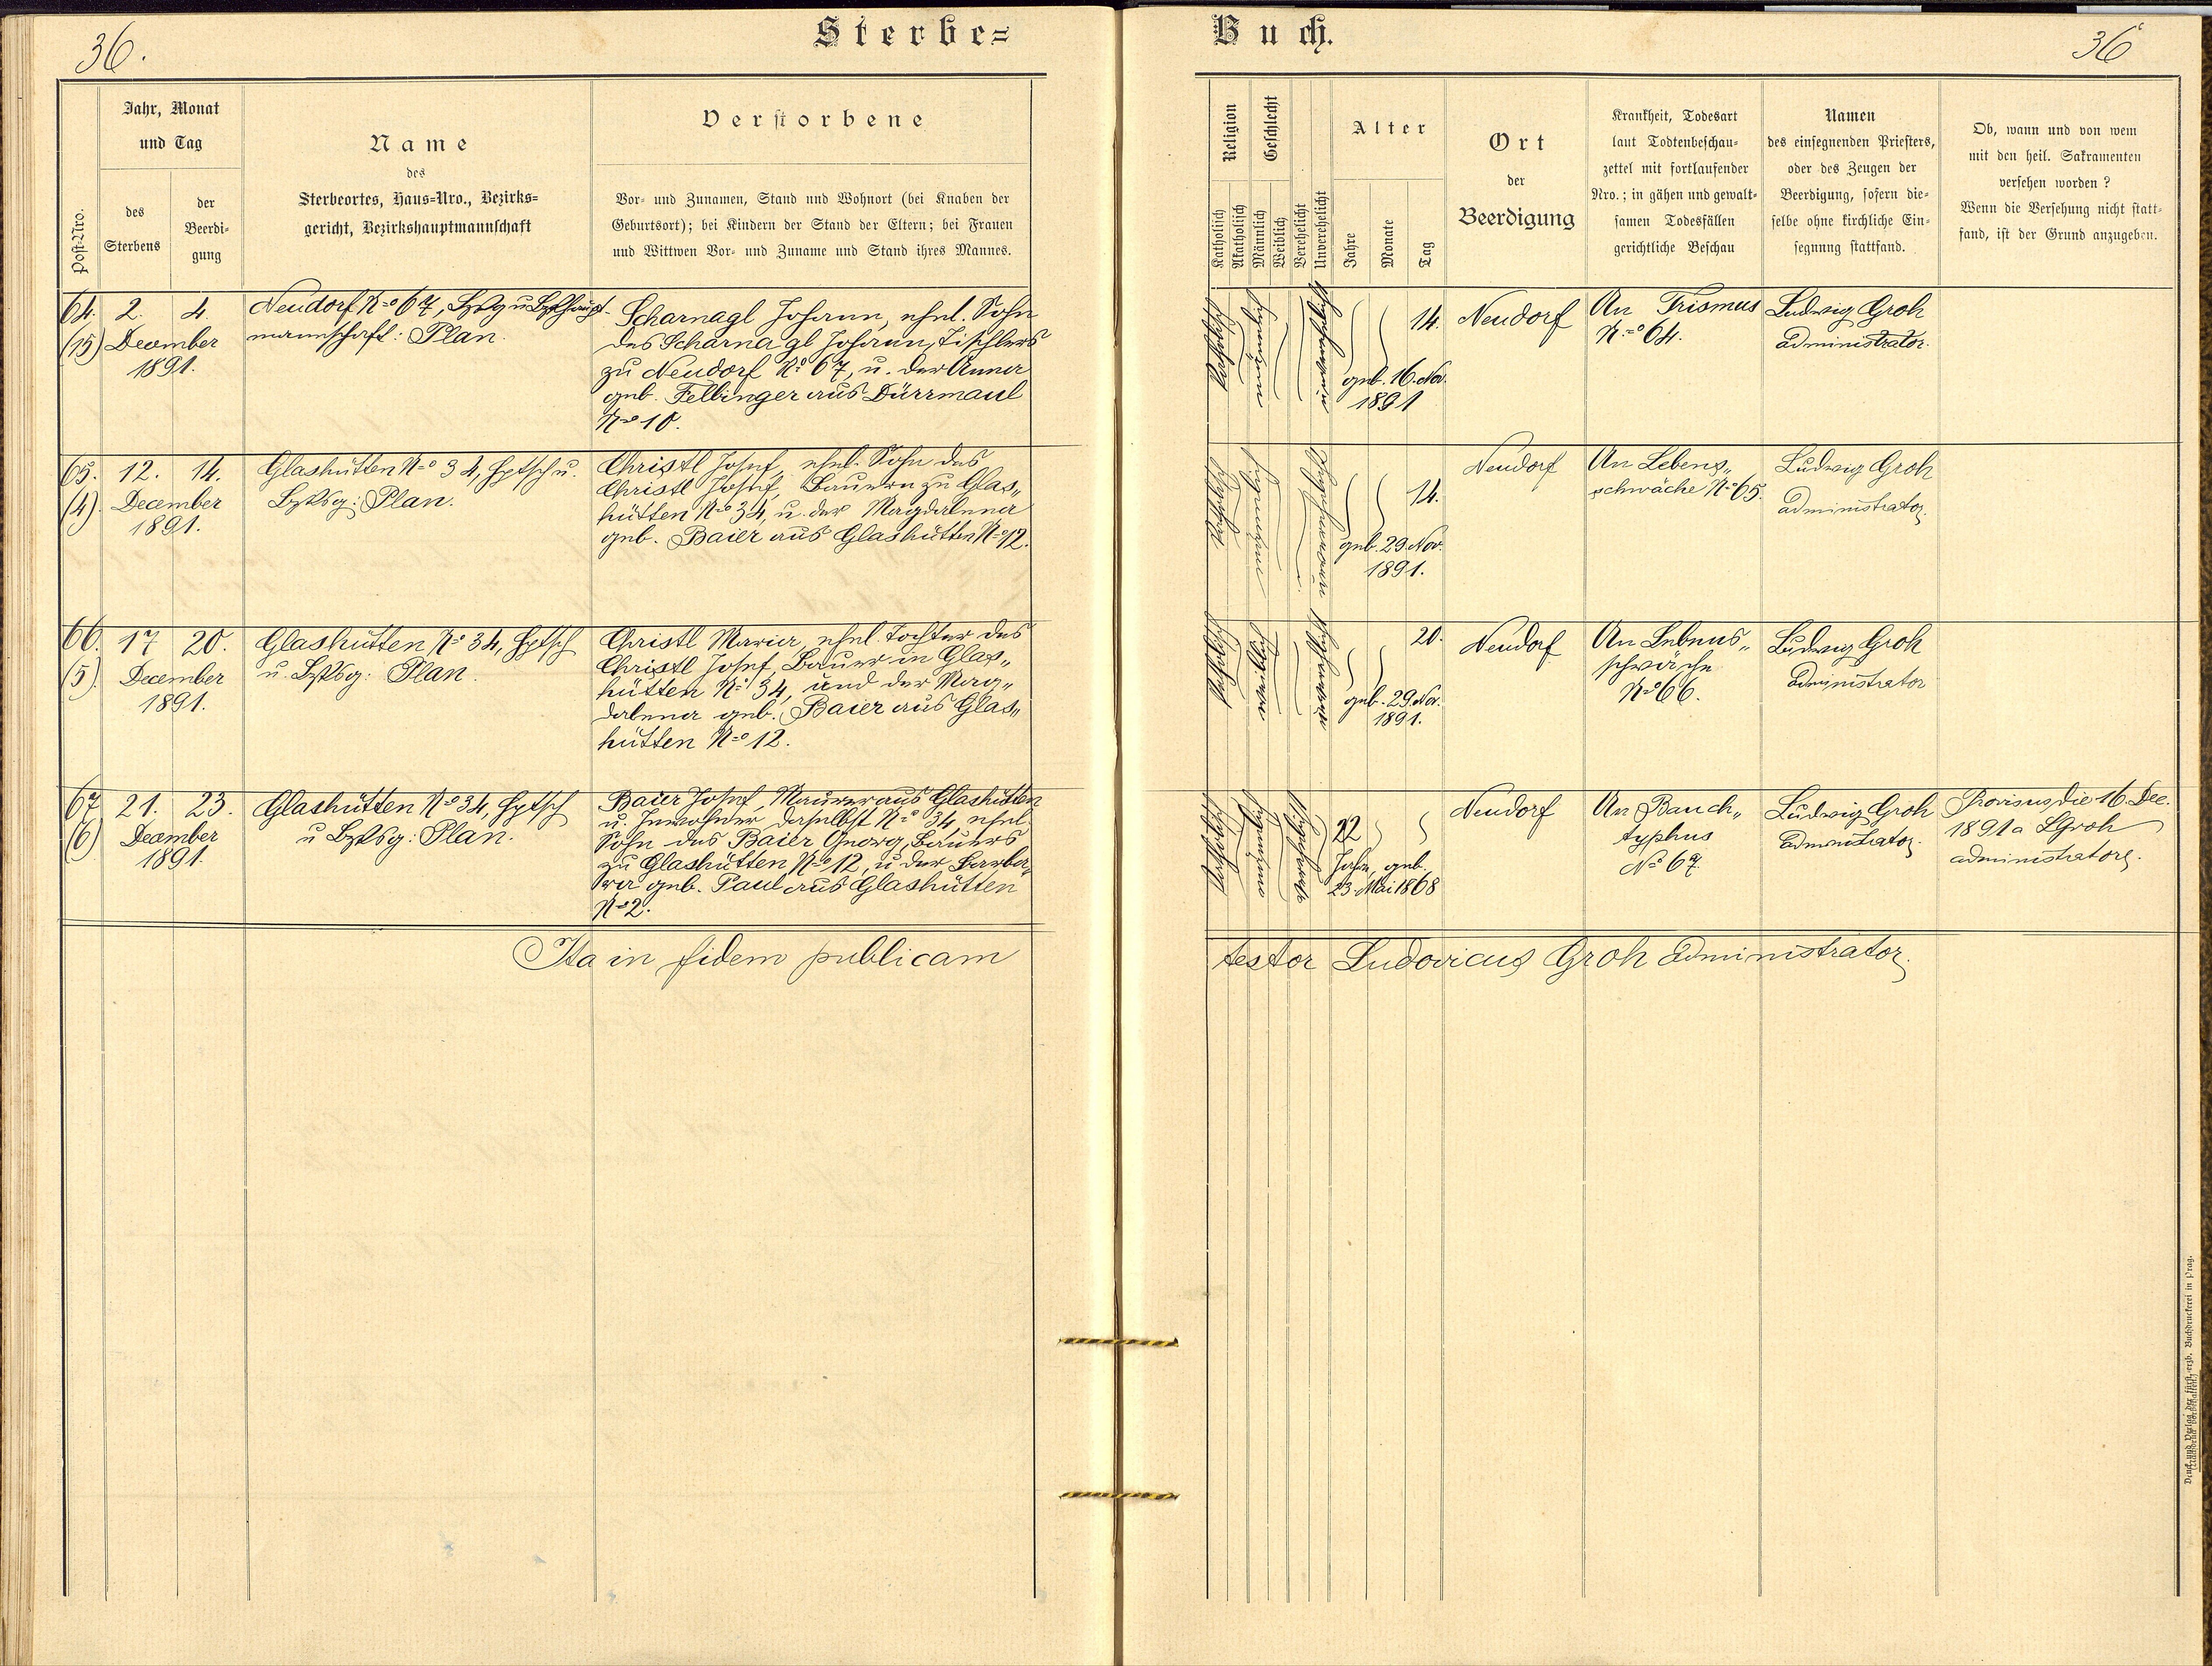 36.
Sterbe=
Buch.
36
Jahr, Monat
und Tag
Post=Nro.
des
Sterbens
der
Beerdi=
gung
Name
des
Sterbeortes, Haus=Nro., Bezirks=
gericht, Bezirkshauptmannschaft
Verstorbene
Vor= und Zunamen, Stand und Wohnort (bei Knaben der
Geburtsort); bei Kindern der Stand der Eltern; bei Frauen
und Wittwen Vor= und Zuname und Stand ihres Mannes.
Religion
Geschlecht
Katholisch
Akatholisch
Männlich
Weiblich
Verehelicht
Unverehelicht
Alter
Jahre
Monate
Tag
Ort
der
Beerdigung
Krankheit, Todesart
laut Todtenbeschau=
zettel mit fortlaufender
Nro.; in gähen und gewalt=
samen Todesfällen
gerichtliche Beschau
Namen
des einsegnenden Priesters,
oder des Zeugen der
Beerdigung, sofern die=
selbe ohne kirchliche Ein=
segnung stattfand.
Ob, wann und von wem
mit den heil. Sakramenten
versehen worden?
Wenn die Versehung nicht statt=
fand, ist der Grund anzugeben.
64. 2. 4.
(15) December
1891.
Neudorf No 67, Bzksg u Bzkshaupt-
mannschaft: Plan.
Scharnagl Johann, ehel. Sohn
des Scharnagl Johann, Tischlers
zu Neudorf No 67, u. der Anna
geb. Felbinger aus Dürrmaul
No 10.
Katholisch
14.
geb. 16. Nov.
1891
Neudorf
An Trismus
No 64.
Ludwig Groh
Administrator.
65. 12. 14.
(4). December
1891.
Glashütten No 34, Hptsch u.
Bzksg: Plan.
Christl Josef, ehel. Sohn des
Christl Josef, Bauern zu Glas„
hütten No 34, u. der Magdalena
geb. Baier aus Glashütten No 12.
Katholisch
14.
geb. 29. Nov.
1891.
Neudorf
An Lebens„
schwäche No 65.
Ludwig Groh
Administrator.
66. 17 20.
(5). December
1891.
Glashütten No 34, Hptsch
u. Bzksg: Plan.
Christl Maria, ehel. Tochter des
Christl Josef, Bauer in Glas„
hütten No 34, und der Mag„
dalena geb. Baier aus Glas„
hütten No 12.
Katholisch
20.
geb. 29. Nov.
1891.
Neudorf
An Lebens„
schwäche
No 66.
Ludwig Groh
Administrator
67 21. 23.
(6) December
1891.
Glashütten No 34, Hptsch
u Bzksg: Plan.
Baier Josef, Maurer aus Glashütten
u. Inwohner daselbst No 34, ehel
Sohn des Baier Georg, Bauers
zu Glashütten No 12, u der Barba„
ra geb. Paul aus Glashütten
No 2.
Katholisch
22
Jahre, geb.
23. Mai 1868
Neudorf
An Bauch„
typhus
No 67.
Ludwig Groh
Administrator.
Provisus die 16. Dec.
1891 a LGroh
administratore.
Ita in fidem publicam
testor Ludovicus Groh Administrator.